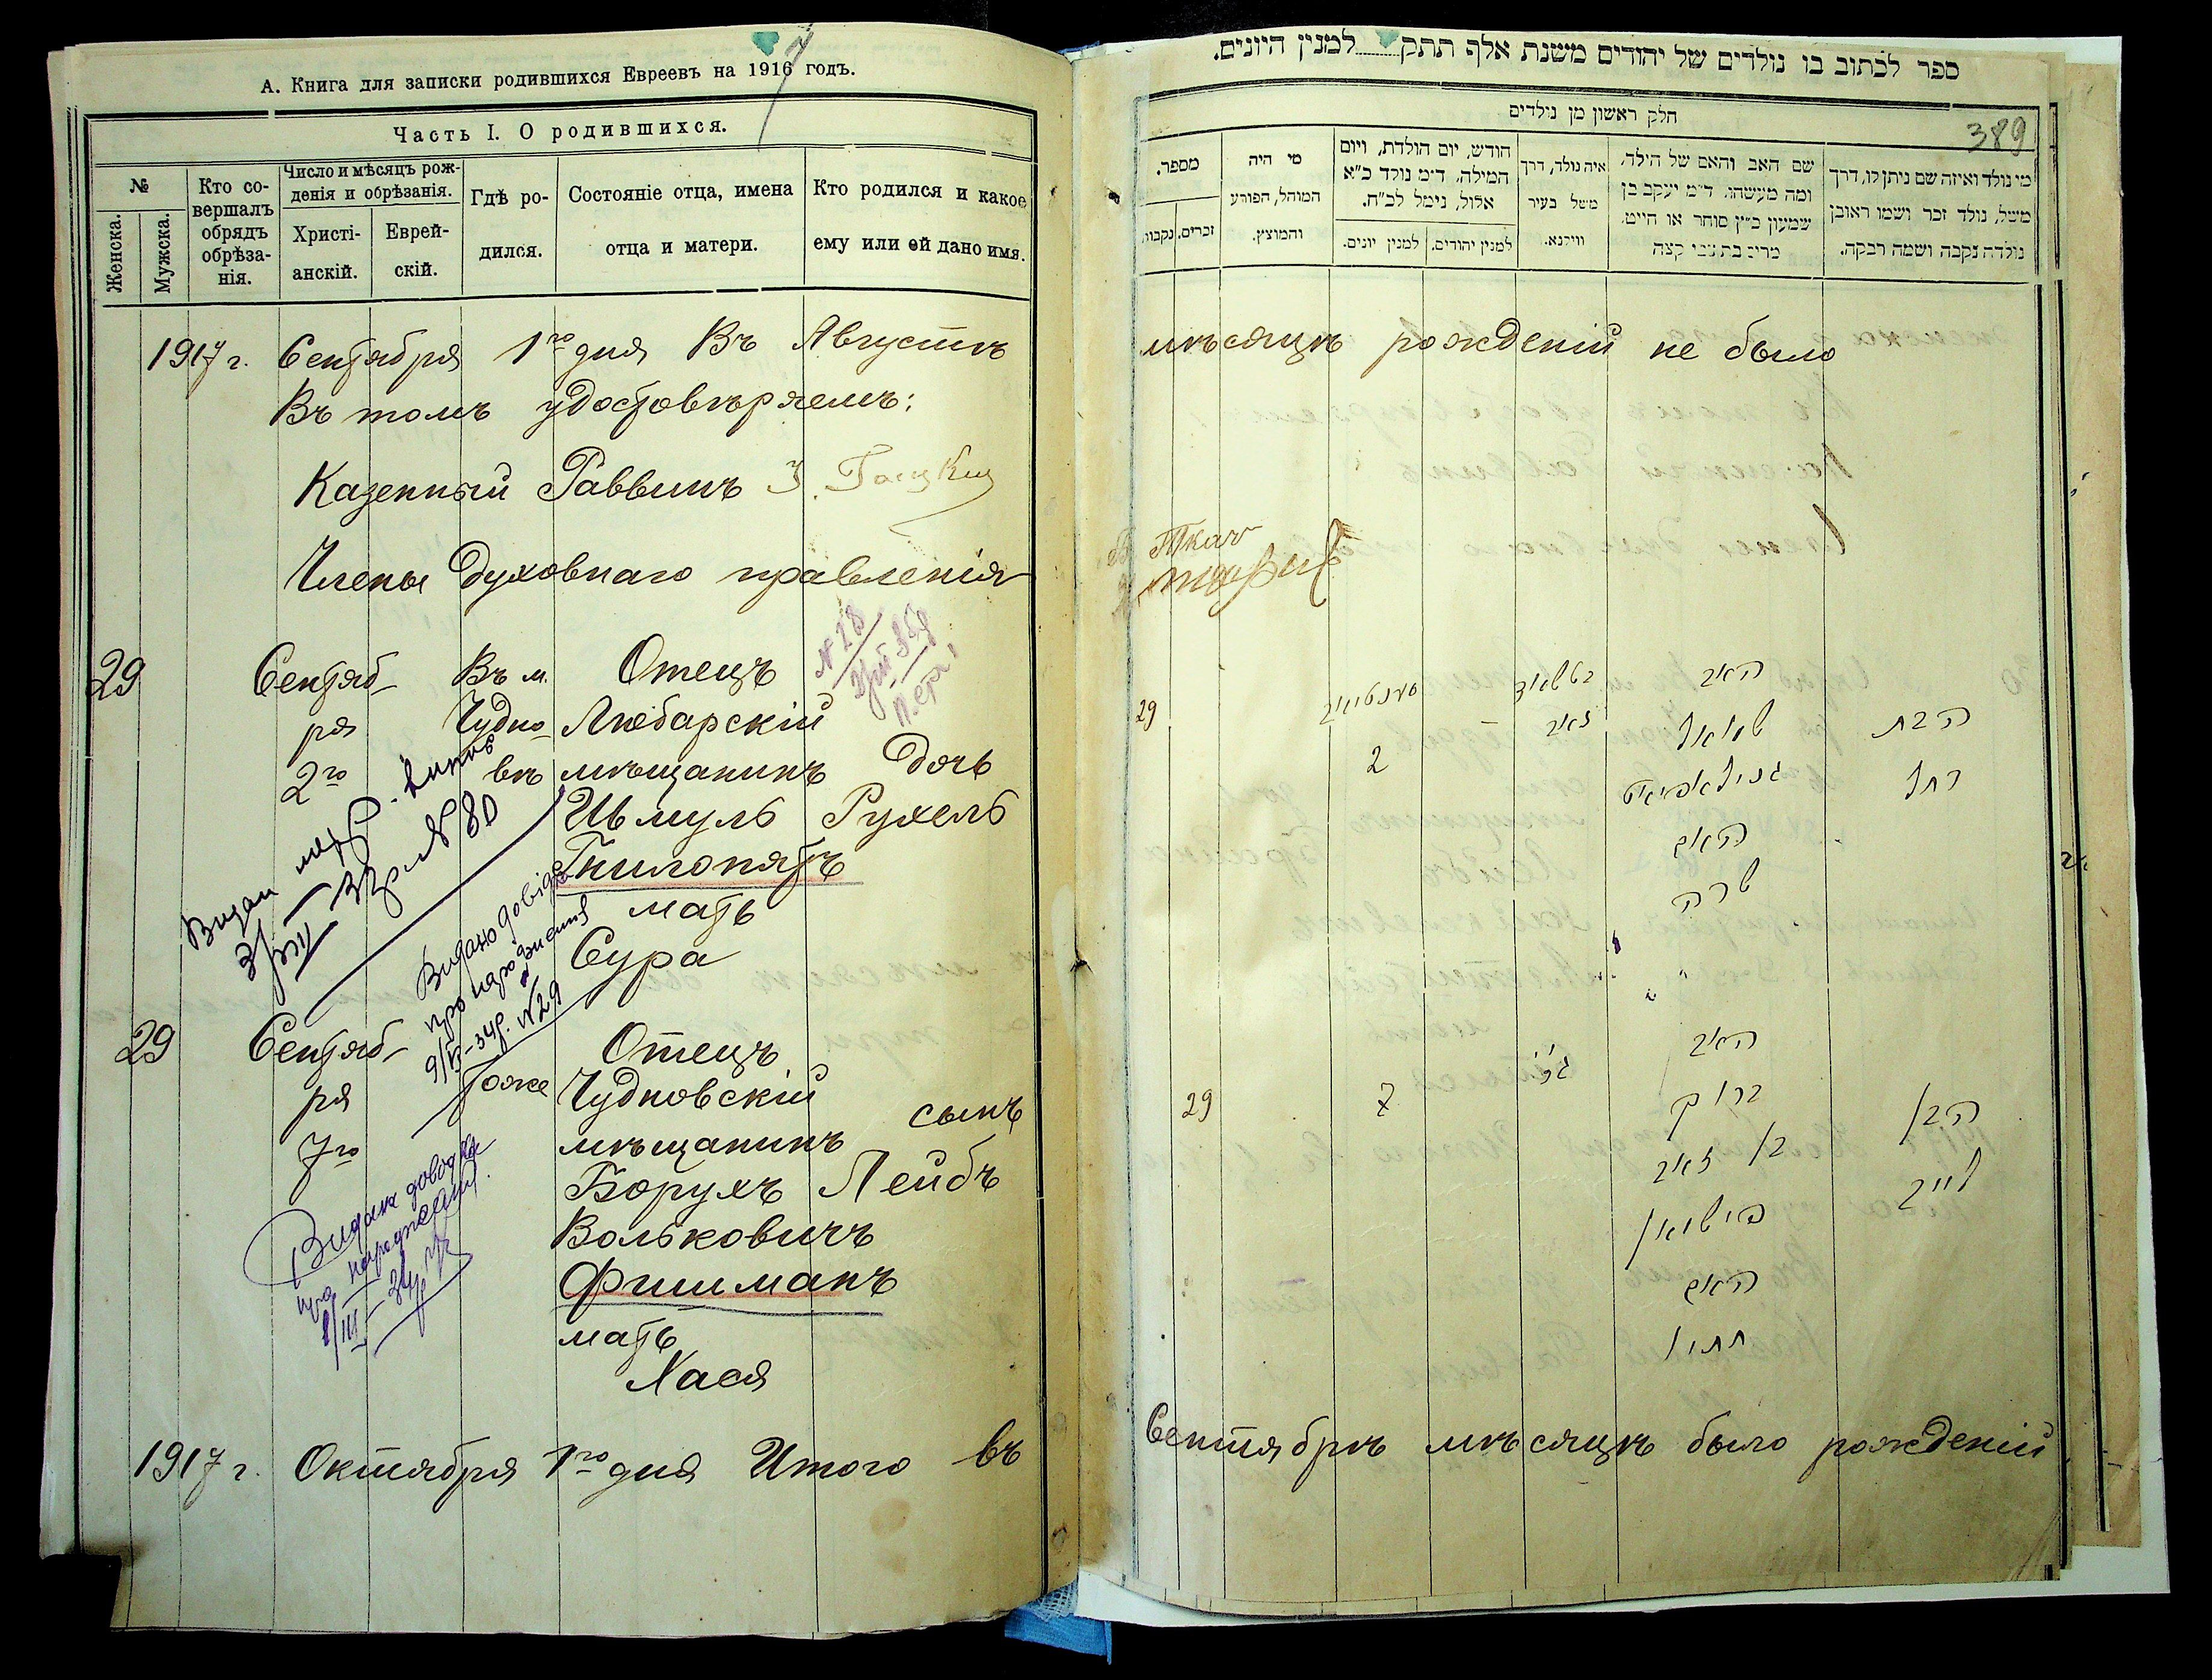 А. Книга для записки родившихся Евреевъ на 1917 годъ.
Часть I. О родившихся.
№
Женска.
Мужска.
Кто совершалъ обрядъ обрѣзанія.
Число и мѣсяцъ рожденія и обрѣзанія.
Христіанскій.
Еврейскій.
Гдѣ родился.
Состояніе отца, имена отца и матери.
Кто родился и какое ему или ей дано имя.
1917 г. Сентября 1го дня Въ Августѣ
Въ томъ удостовѣряемъ:
Казенный Раввинъ
Члены Духовнаго правленія
29 Сентяб- Въ м. Отецъ
ря Чудно- Любарскій
2го вѣ мѣщанинъ Дочь
Шмуль Рухель
Гнилопятъ
мать
Сура
Видано довідку
про народження
9/VI-34р. №29
29 Сентяб- Отецъ
ря тоже Чудновскій
7го мѣщанинъ сынъ
Борухъ Лейбъ
Вольковичъ
Фишманъ
мать
Хася
Видана довідка
про народження
1917 г. Октября 1го дня Итого въ
ספר לכתוב בו נולדים של יהודים משנת אלף תתק למנין היונים.
389
חלק ראשון מן נולדים
מספר.
זכרים.
נקבות
מי היה המוהל, הפורע והמוצץ.
חודש, יום הולדת, ויום
המילה. ד״מ נולד כ״א
אלול, נימל לכ״ח.
למנין יונים.
למנין יהודים.
איה נולד, דרך
משל בעיר
ווילנא.
שם האב והאם של הילד,
ומה מעשהו. ד״מ יעקב בן
שמעון כ״ץ סוחר או חייט.
מי נולד ואיזה שם ניתן לו, דרך
משל, נולד זכר ושמו ראובן
נולדה נקבה ושמה רבקה.
мѣсяцѣ рожденій не было
Ткач
29
האב
הבת
2
רחל
האם
שרה
האב
29
7
ברוך
הבן
בן זאב
לייב
פישמאן
האם
Сентябрѣ мѣсяцѣ было рожденій